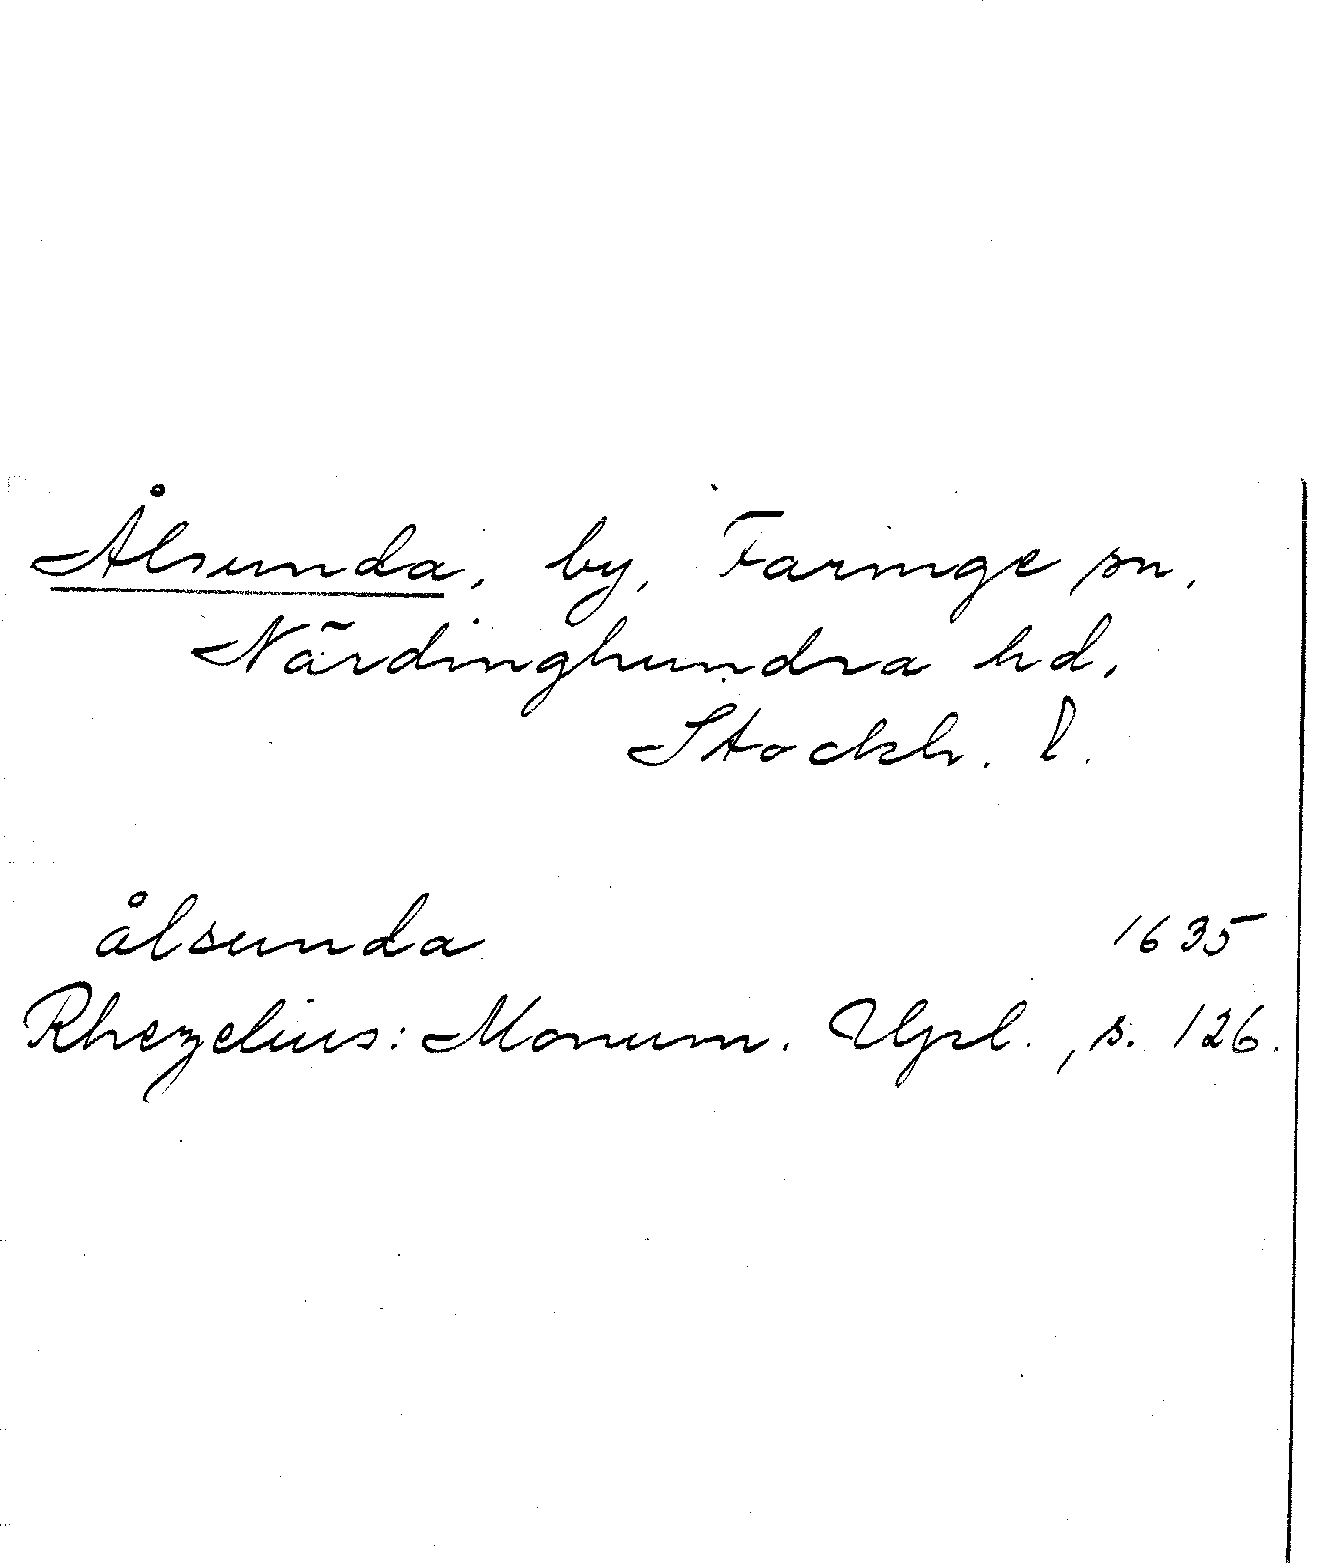 Ålsunda, by, Faringe sn,
Närdinghundra hd,
Stockh. l.
ålsunda 1635
Rhezelius: Monum. Upl., s. 126.